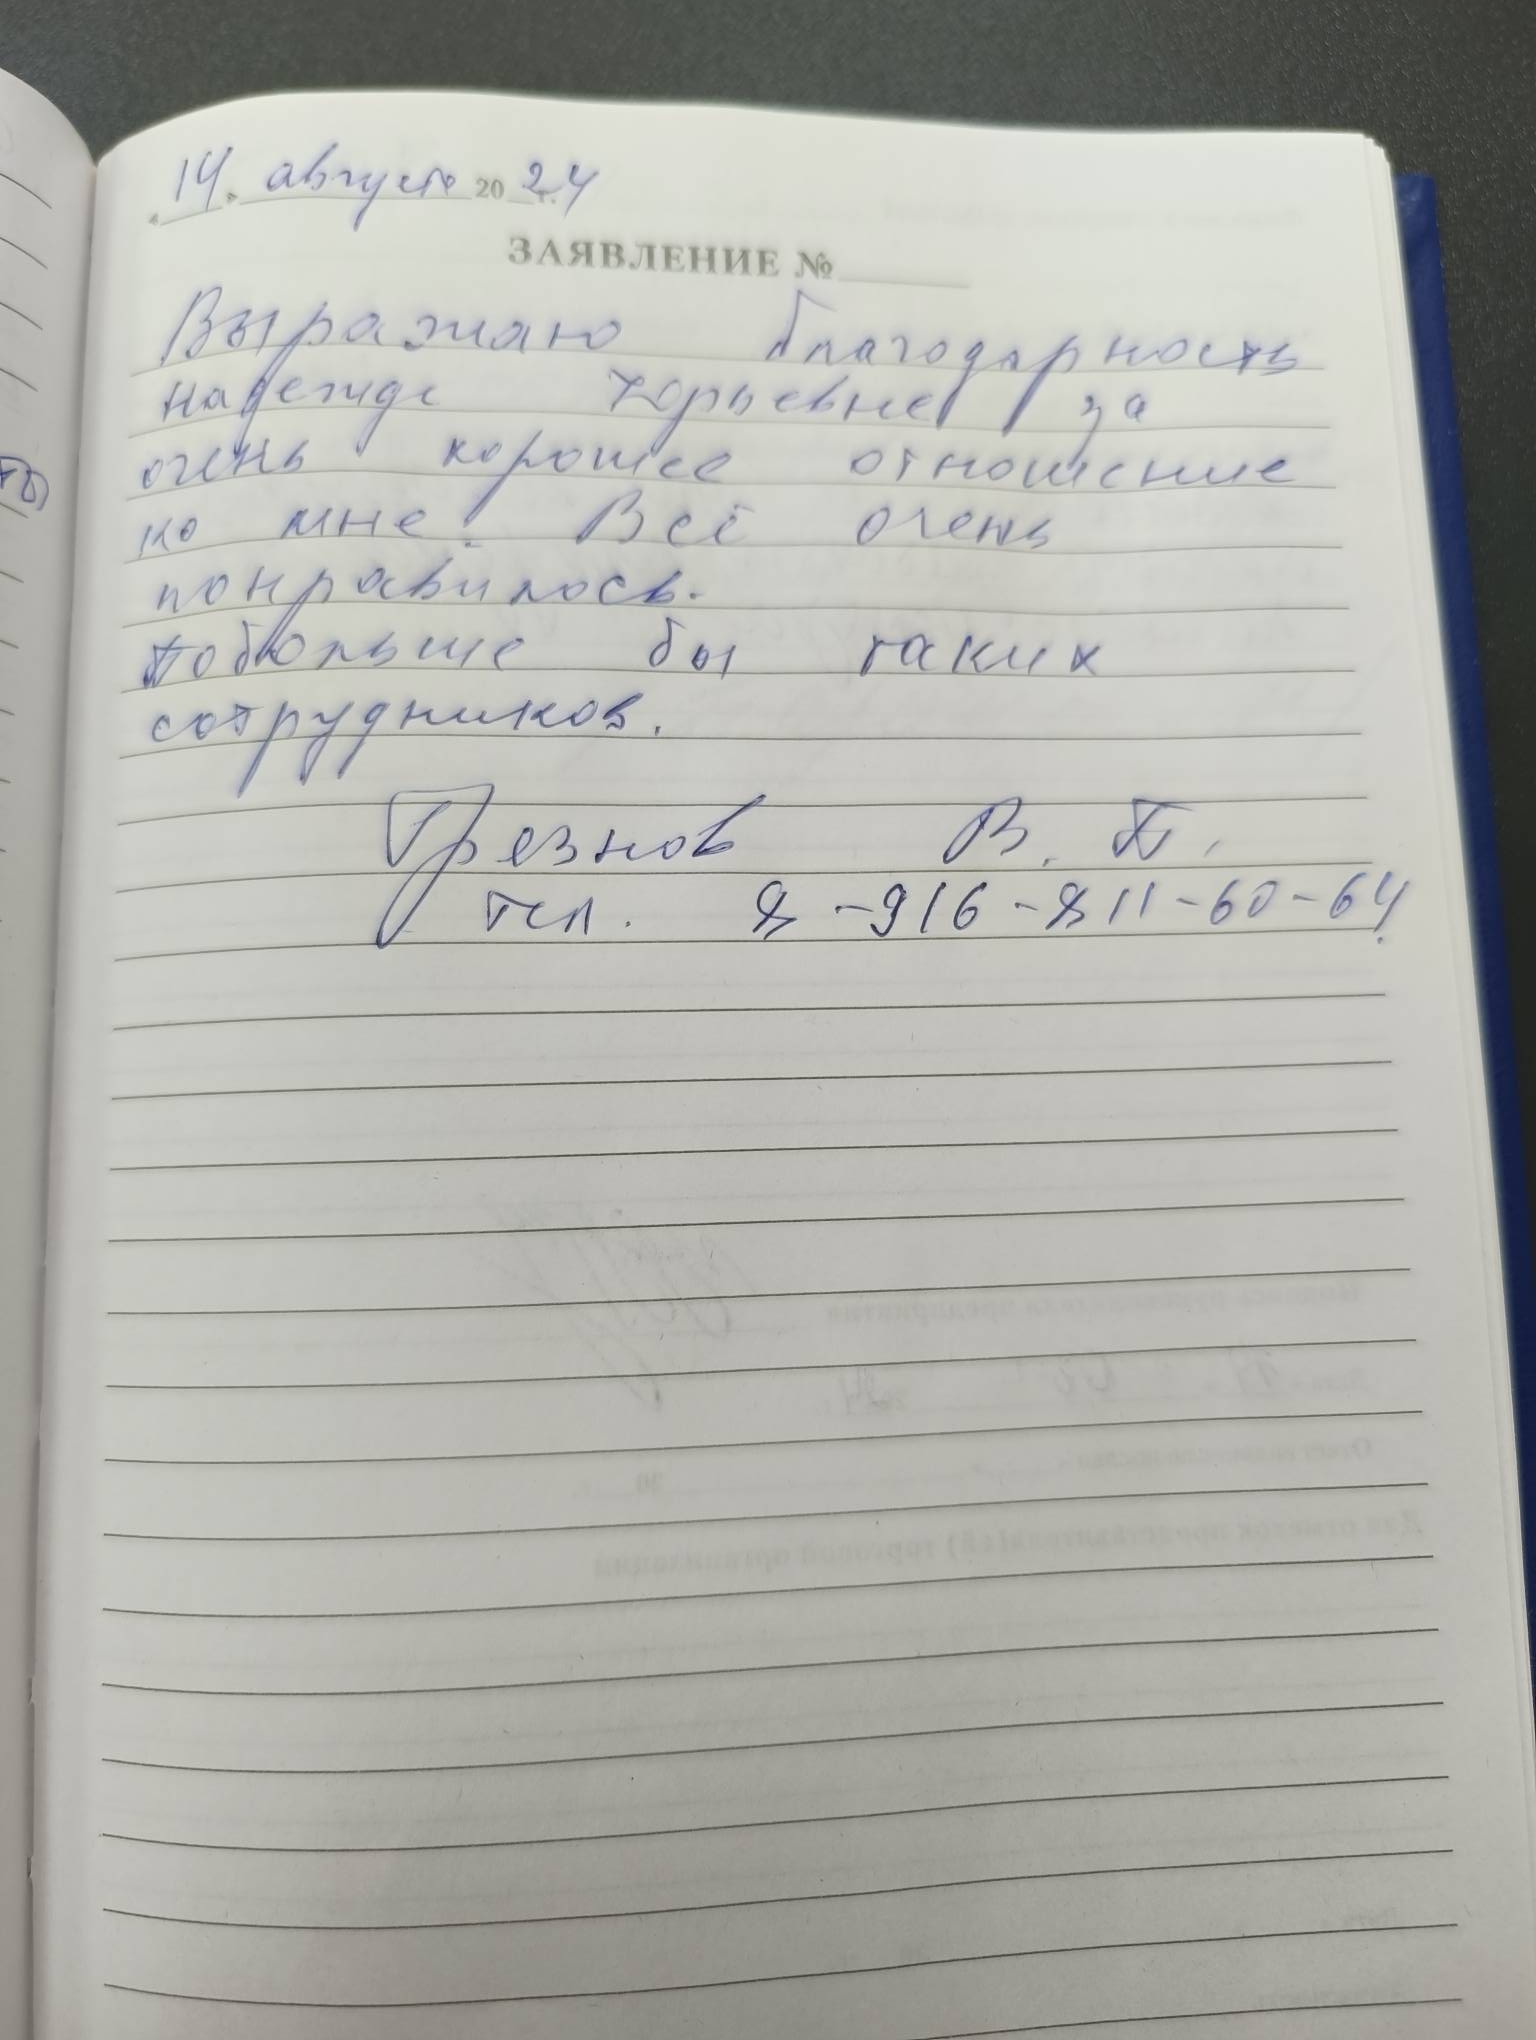 « 14 » августа 20 24 г.
ЗАЯВЛЕНИЕ №
Выражаю благодарность
Надежде Юрьевне за
очень хорошее отношение
ко мне. Всё очень
понравилось.
Побольше бы таких
сотрудников.
Грезнов В. П.
тел. 8-916-811-60-64